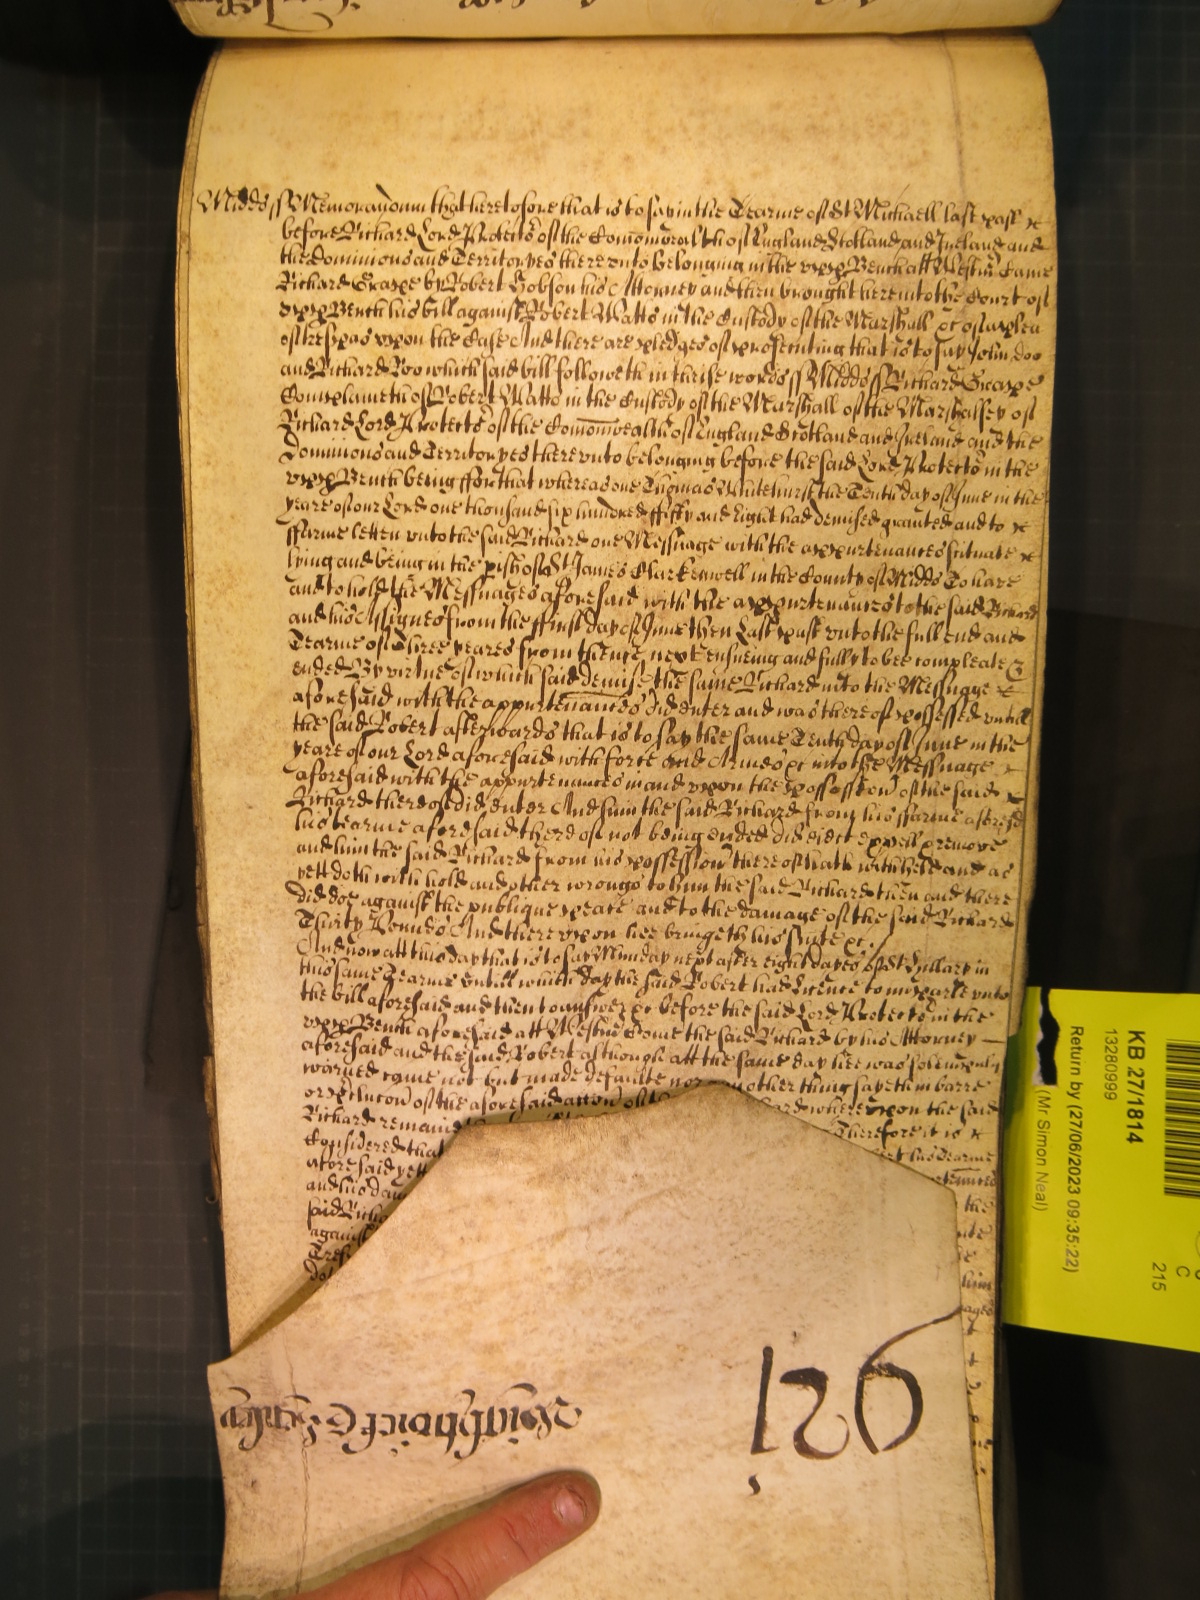 Midds ss Memorandum that heretofore that is to say in the Tearme of St Michaell last past
before Richard Lord Protector of the Comonwealth of England Scotland and Ireland and
the Dominions and Territoryes there unto belonging in the upp Bench att Westmr Came
Richard Grape by Robert Hobson his Attorney and then brought here into the Court of
upp Bench his bill against Robert Watts in the Custody of the Marshall &c of a plea
of trespas upon the Case And there are pledges of prosecuting that is to say John doo
and Richard Roo which said bill followeth in these words ss Midds ss Richard Grape
Complaineth of Robert Watts in the Custody of the Marshall of the Marshalsey of
Richard Lord Protector of the Comonwealth of England Scotland and Ireland and the
Dominions and Territoryes there unto belonging before the said Lord Protector in the
upp Bench being ffor that whereas one Thomas Whitehurst the Tenth day of June in the
yeare of our Lord one thousand six hundred ffifty and Eight had demised granted and to
ffarme letten unto the said Richard one Messuage with the appurtenances situate
lying and being in the pish of St James Clarkenwell in the County of Midds To have
and to hold the Messuages aforesaid with the appurtenances to the said Richard
and his Assignes from the ffirst day of June then Last past unto the full end and
Tearme of Three yeares from thence next ensueing and fully to bee compleate &
ended By virtue of which said demise the same Richard into the Messuage
aforesaid with the appurtenances did enter and was thereof possessed untill
the said Robert afterwards that is to say the same Tenth day of June in the
yeare of our Lord aforesaid with force and Armes &c into the Messuage
aforesaid with the appurtenances in and upon the possession of the said
Richard thereof did enter And him the said Richard from his ffarme aforesd
his tearme aforesaid thereof not being ended did eiect expell & remove
and him the said Richard from his possession thereof hath withheld and as
yett doth with hold and other wrongs to him the said Richard then and there
did doe against the publique peace and to the damage of the said Richard
Thirty Pounds And there upon hee bringeth his Suite &c
And now att this day that is to say Munday next after eight dayes of St Hillary in
this same Tearme Untill which day the said Robert had Licence to imparle unto
the bill aforesaid and then to answer &c before the said Lord Protector in the
upp Bench aforesaid att Westmr Come the said Richard by his Attorney
aforesaid and the said Robert although att the same day hee was solempnly
warned came not but made defaulte nor other thing sayeth in barre
or preclucon of the aforesaid accon of the whereupon the said
Richard remain Therefore it is
Considered that his Tearme
aforesaid yett
and his dam the
said Richa
against
Tresp him
921
KB 27/1814
13280999
Return by (27/06/2023 09:35:22)
(Mr Simon Neal)
C
215